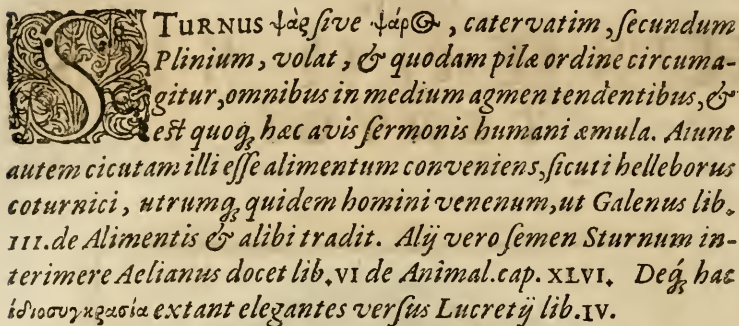 STURNUS ψὰρ ſive ψάρος, catervatim, ſecundum
Plinium, volat, & quodam pilæ ordine circuma-
gitur, omnibus in medium agmen tendentibus, &
eſt quoq́; hæc avis ſermonis humani æmula. Aiunt
autem cicutam illi eſſe alimentum conveniens, ſicuti helleborus
coturnici, utrumq́; quidem homini venenum, ut Galenus lib.
III. de Alimentis & alibi tradit. Alij vero ſemen Sturnum in-
terimere Aelianus docet lib. VI de Animal. cap. XLVI. Deq́; hac
ἰδιοσυγκρασία extant elegantes verſus Lucretij lib. IV.